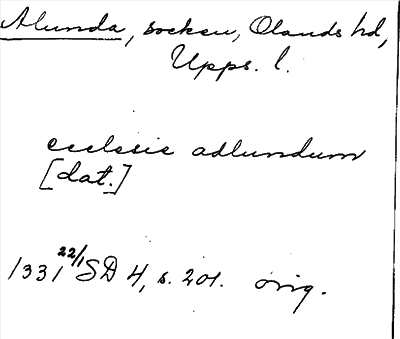 Alunda, socken, Olands hd,
Upps. l.
ecclesie adlundum
[dat.]
1331 22/1 SD 4, s. 201. orig.